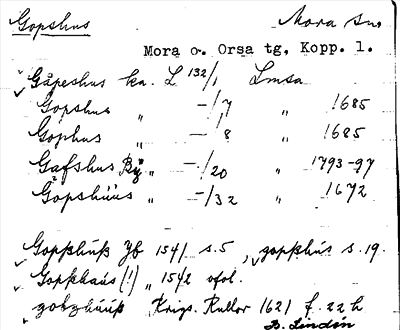 Gopshus Mora sn.
Mora o. Orsa tg, Kopp. l.
Gåpeshus ka. L 132/1 Lmsa
Gopshus „ —/7 „ 1685
Gophus „ —/8 „ 1685
Gafshus By „ —/20 „ 1793-97
Gåpshuus „ —/32 „ 1672
Gopzhuss Jb 1541 s.5, gopzhus s.19.
Gopzhaus (!) „ 1542
gobzhuus Krigs. Rullor 1621 f. 22 h
B. Lindén